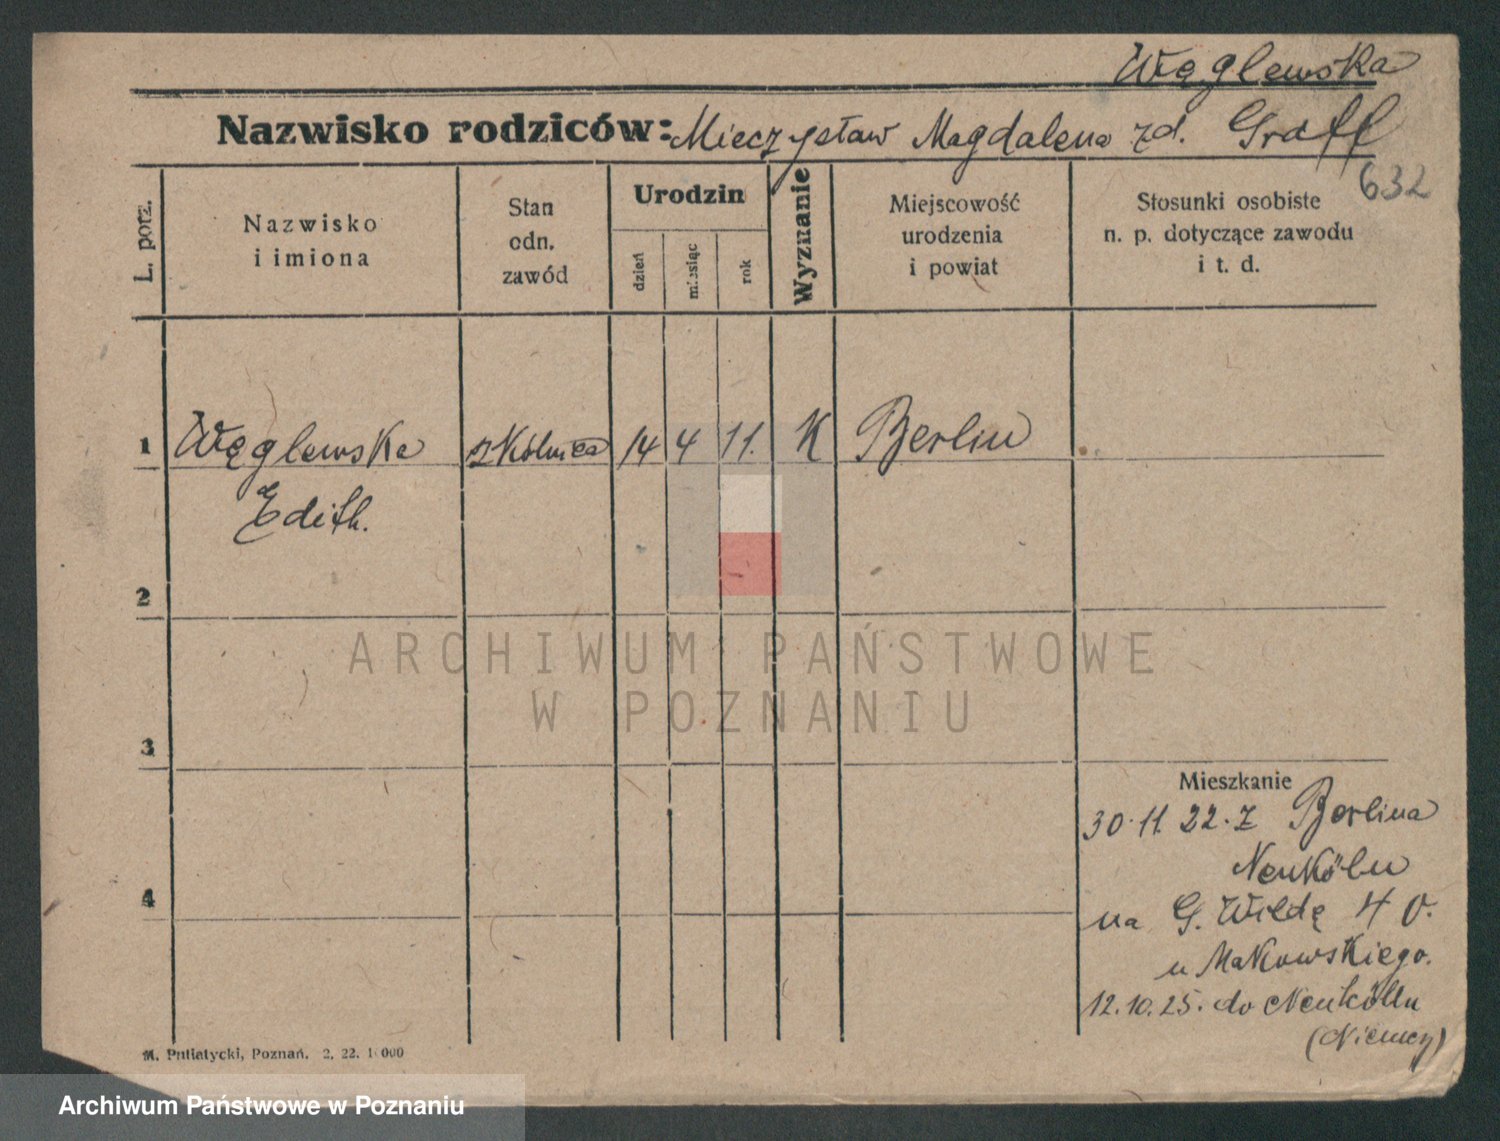 Węglewska
Nazwisko rodziców: Mieczysław Magdalena zd. Graff
632
L. porz.
Nazwisko
i imiona
Stan
odn.
zawód
Urodzin
dzień
miesiąc
rok
Wyznanie
Miejscowość
urodzenia
i powiat
Stosunki osobiste
n. p. dotyczące zawodu
i t. d.
1 Węglewska szkolnica 14 4 11. K Berlin
Edith.
2
ARCHIWUM PAŃSTWOWE
W POZNANIU
3
Mieszkanie
30.11 22. z Berlina
Neuköln
4
na G. Wildę 40.
u Makowskiego.
12.10.25. do Neukölln
(Niemcy)
M. Putiatycki, Poznań. 2. 22. 1 000
Archiwum Państwowe w Poznaniu